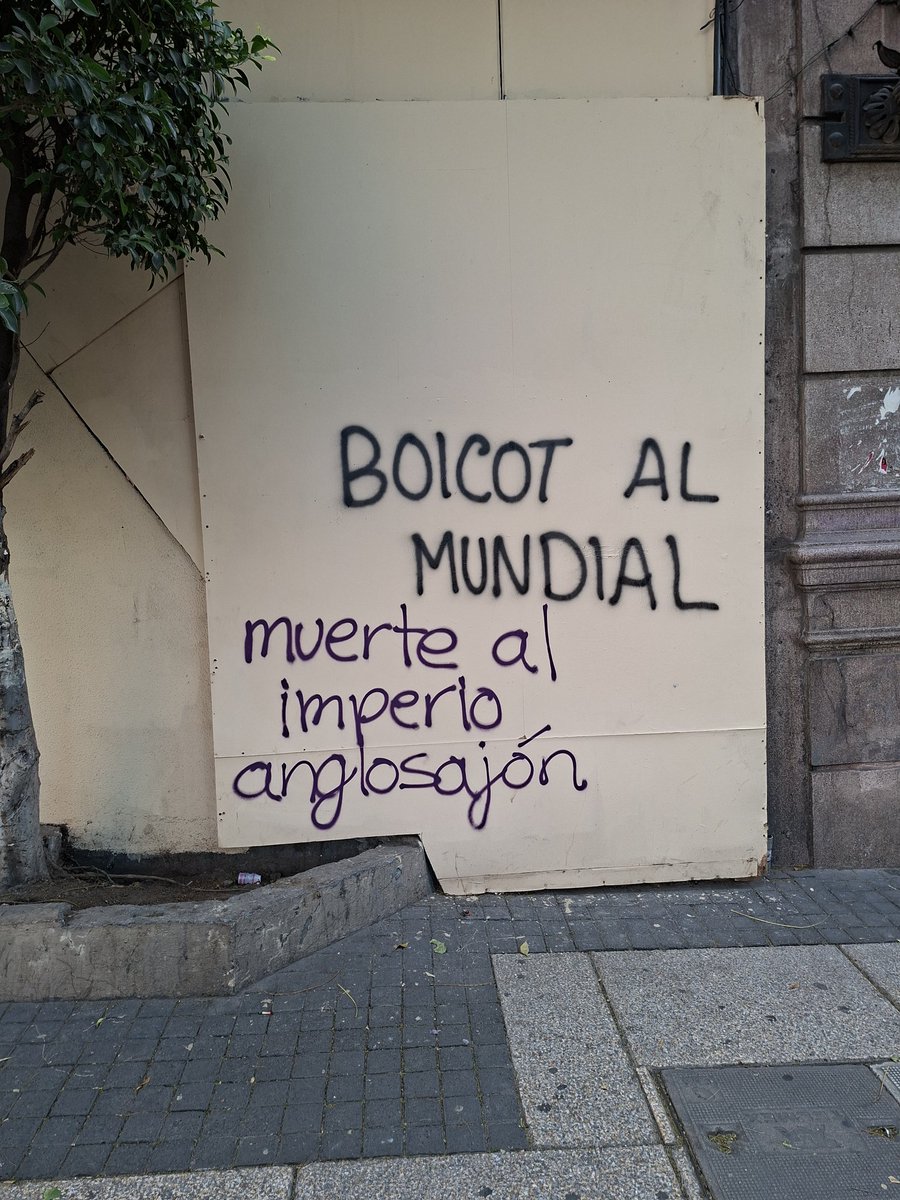 BOICOT AL
MUNDIAL
muerte al
imperio
anglosajón